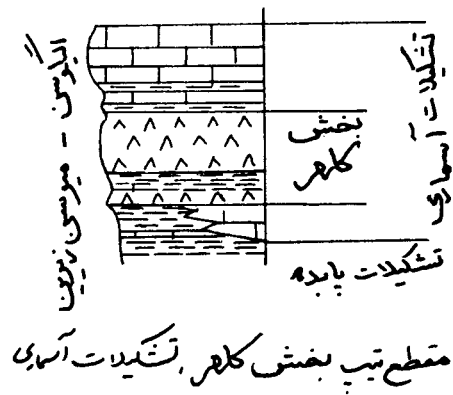 الیگوسن - میوسن زیرین
تشکیلات آسماری
بخش
کلهر
تشکیلات پابده
مقطع تیپ بخش کلهر, تشکیلات آسماری